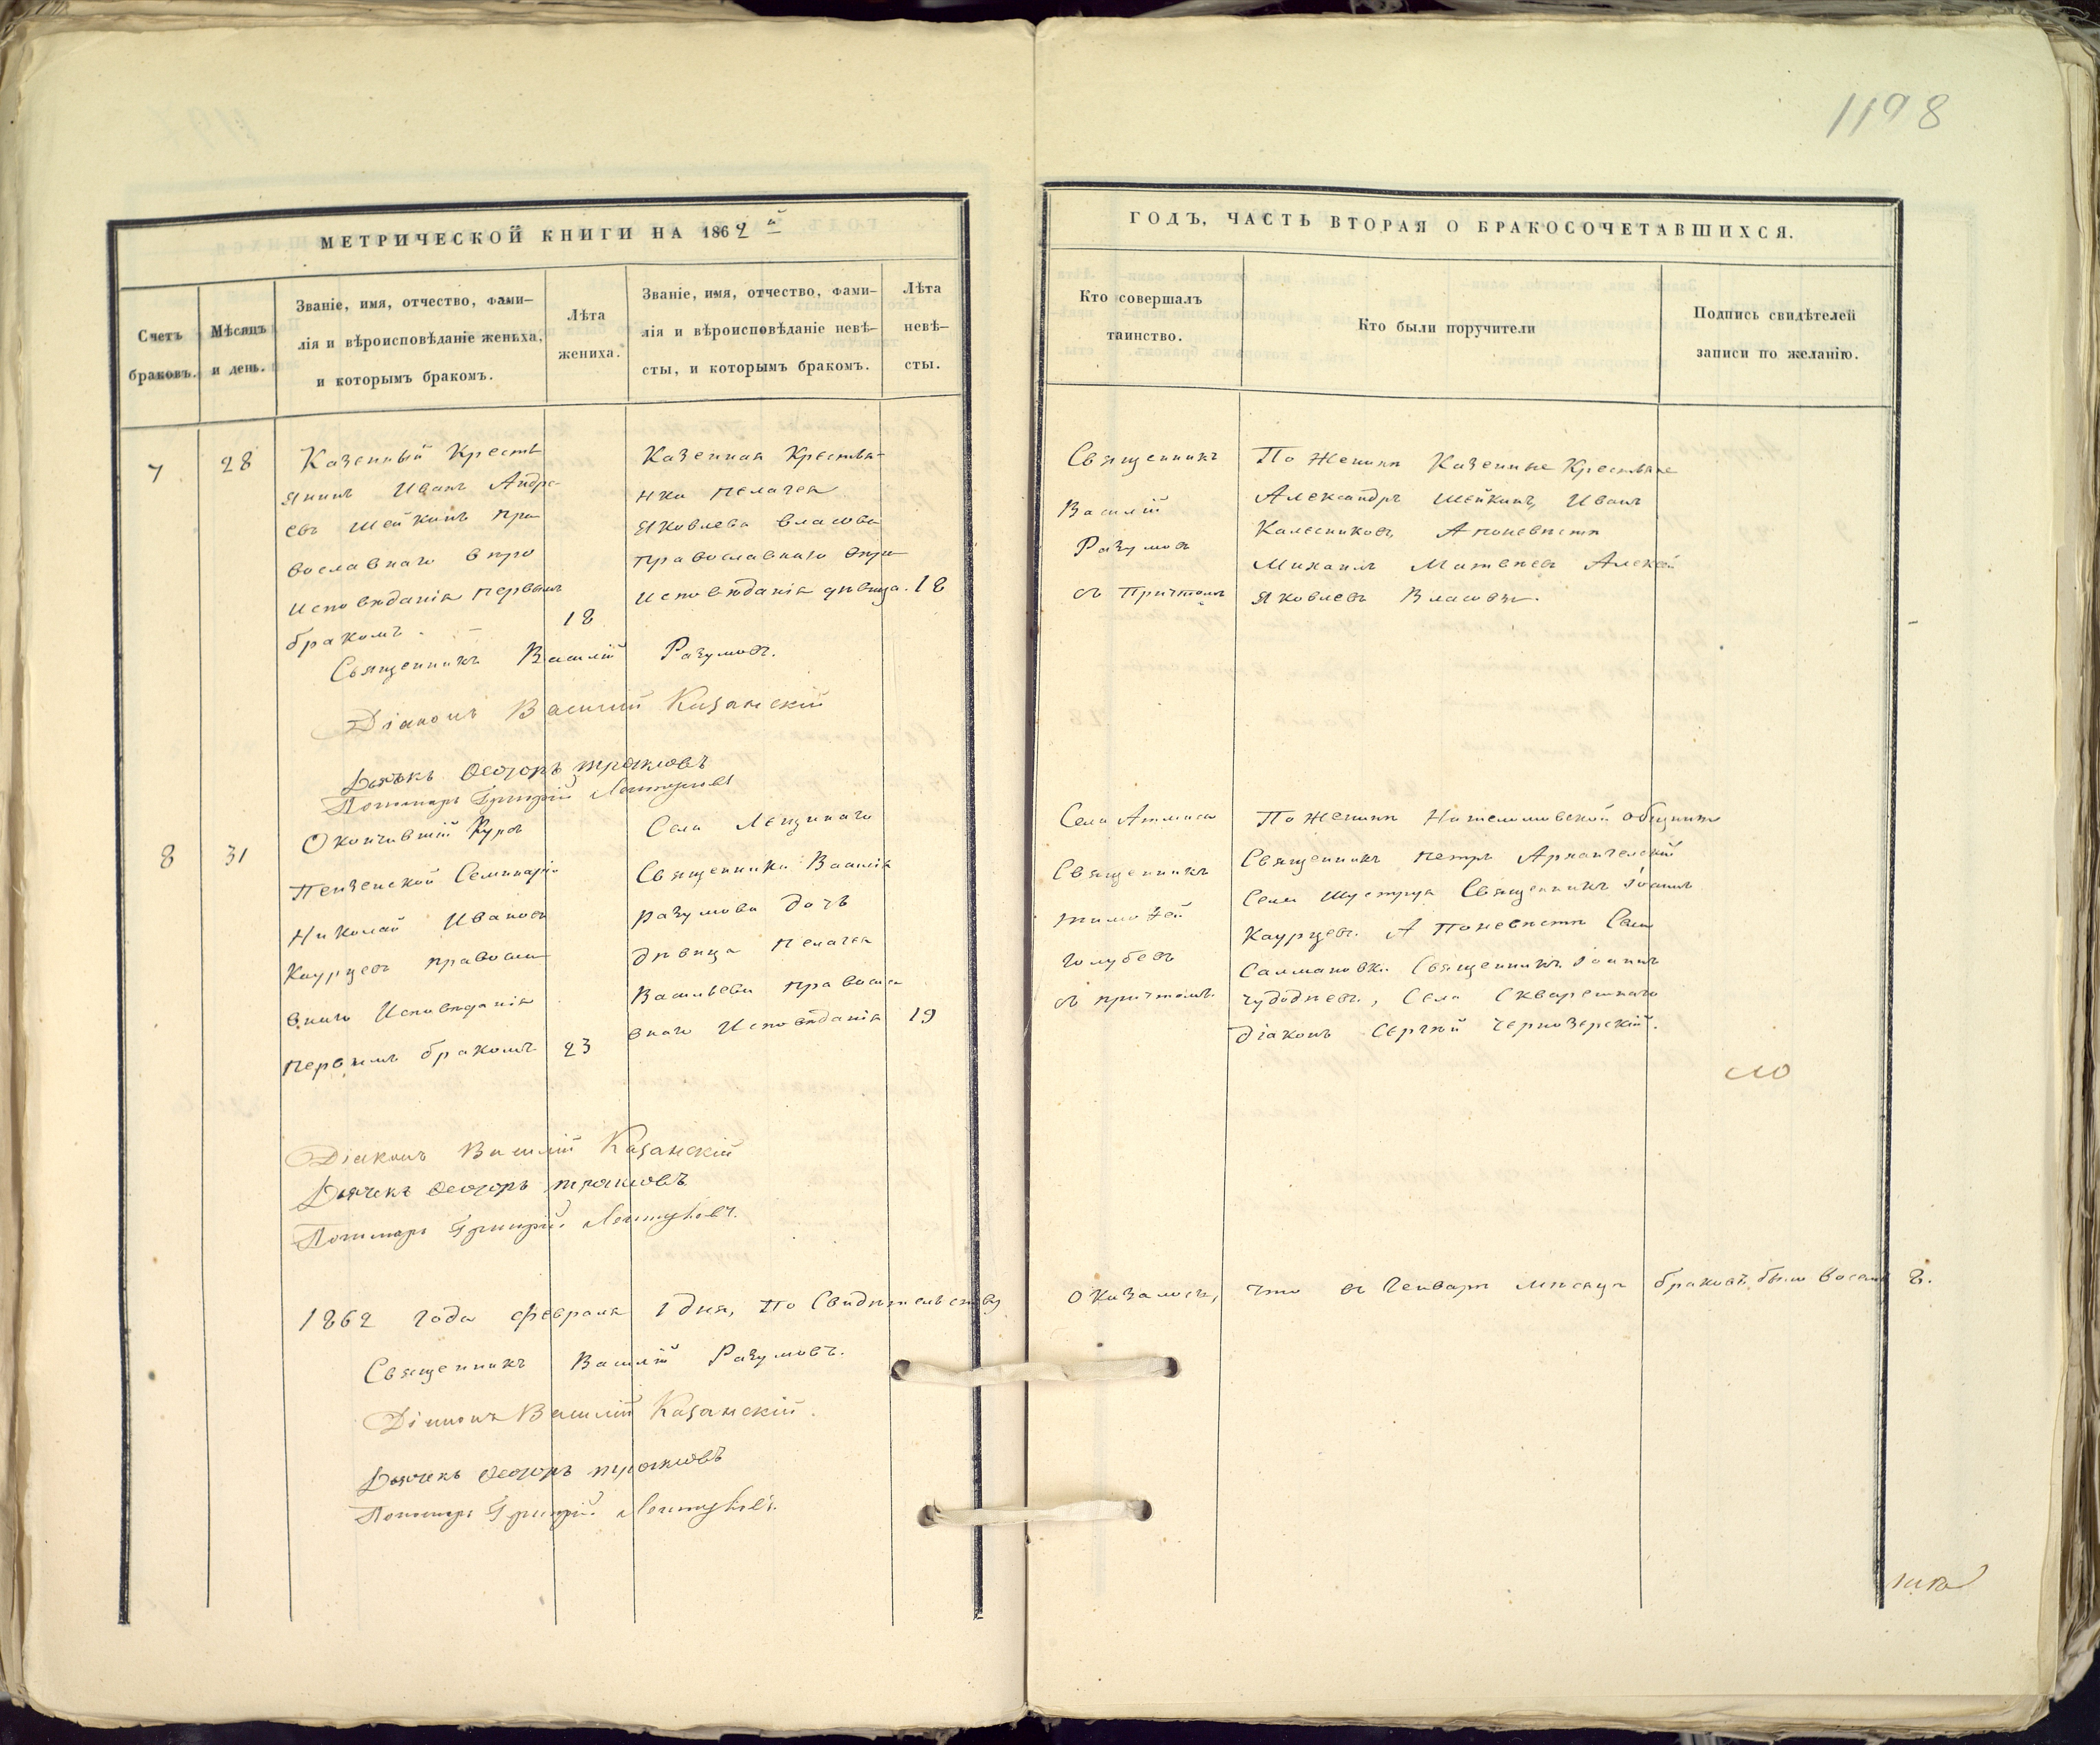 1198
МЕТРИЧЕСКОЙ КНИГИ НА 1862 й
ГОДЪ, ЧАСТЬ ВТОРАЯ О БРАКОСОЧЕТАВШИХСЯ.
Счетъ
браковъ.
Мѣсяцъ
и день.
Званіе, имя, отчество, фами-
лія и вѣроисповѣданіе жениха,
и которымъ бракомъ.
Лѣта
жениха.
Званіе, имя, отчество, фами-
лія и вѣроисповѣданіе невѣ-
сты, и которымъ бракомъ.
Лѣта
невѣ-
сты.
Кто совершалъ
таинство.
Кто были поручители
Подпись свидѣтелей
записи по желанію.
7
28
Казенный Кресть
янинъ Иванъ Андре-
евъ Шейкинъ пра
вославнаго впро
исповѣданія первымъ
бракомъ.
18
Казенная Крестья-
нка Пелагея
Яковлева Власова
православнаго впро
исповѣданія дѣвица.
18
Священникъ
Василій
Разумовъ
съ Причтомъ
По Женихѣ Казенные Крестьяне
Александръ Шейкинъ, Иванъ
Калесниковъ, А поневѣстѣ
Михаилъ Матвеевъ Алексѣй
Яковлевъ Власовы.
Священникъ Василій Разумовъ.
Діаконъ Василій Казанскій
Дьячекъ Ѳеодоръ
Пономарь Григорій Лентуловъ
8
31
Окончившій Курсъ
Пензенской Семинаріи
Николай Ивановъ
Каурцевъ правосла
внаго Исповѣданія
первымъ бракомъ
23
Села Лещинаго
Священника Василія
Разумова дочь
дѣвица Пелагея
Васильева правосла
внаго Исповѣданія
19
Села Атмиса
Священникъ
Тимоѳей
Голубевъ
съ причтомъ.
По Женихѣ
Священникъ Петръ Архангельскій
Села Шуструя Священникъ Іоаннъ
Каурцевъ. А поневѣстѣ Села
Салмановки Священникъ Іоаннъ
Чудодѣевъ, Села Скварешнаго
Діаконъ Сергѣй Чернозерскій.
Діаконъ Василій Казанскій
Дьячекъ Ѳеодоръ
Пономарь Григорій Лентуловъ.
1862 года Февраля 1 дня, по Свидѣтельству
оказалось, что въ Генварѣ мѣсяцѣ браковъ было восемь 8.
Священникъ Василій Разумовъ.
Діаконъ Василій Казанскій.
Дьячекъ Ѳеодоръ
Пономарь Григорій Лентуловъ.